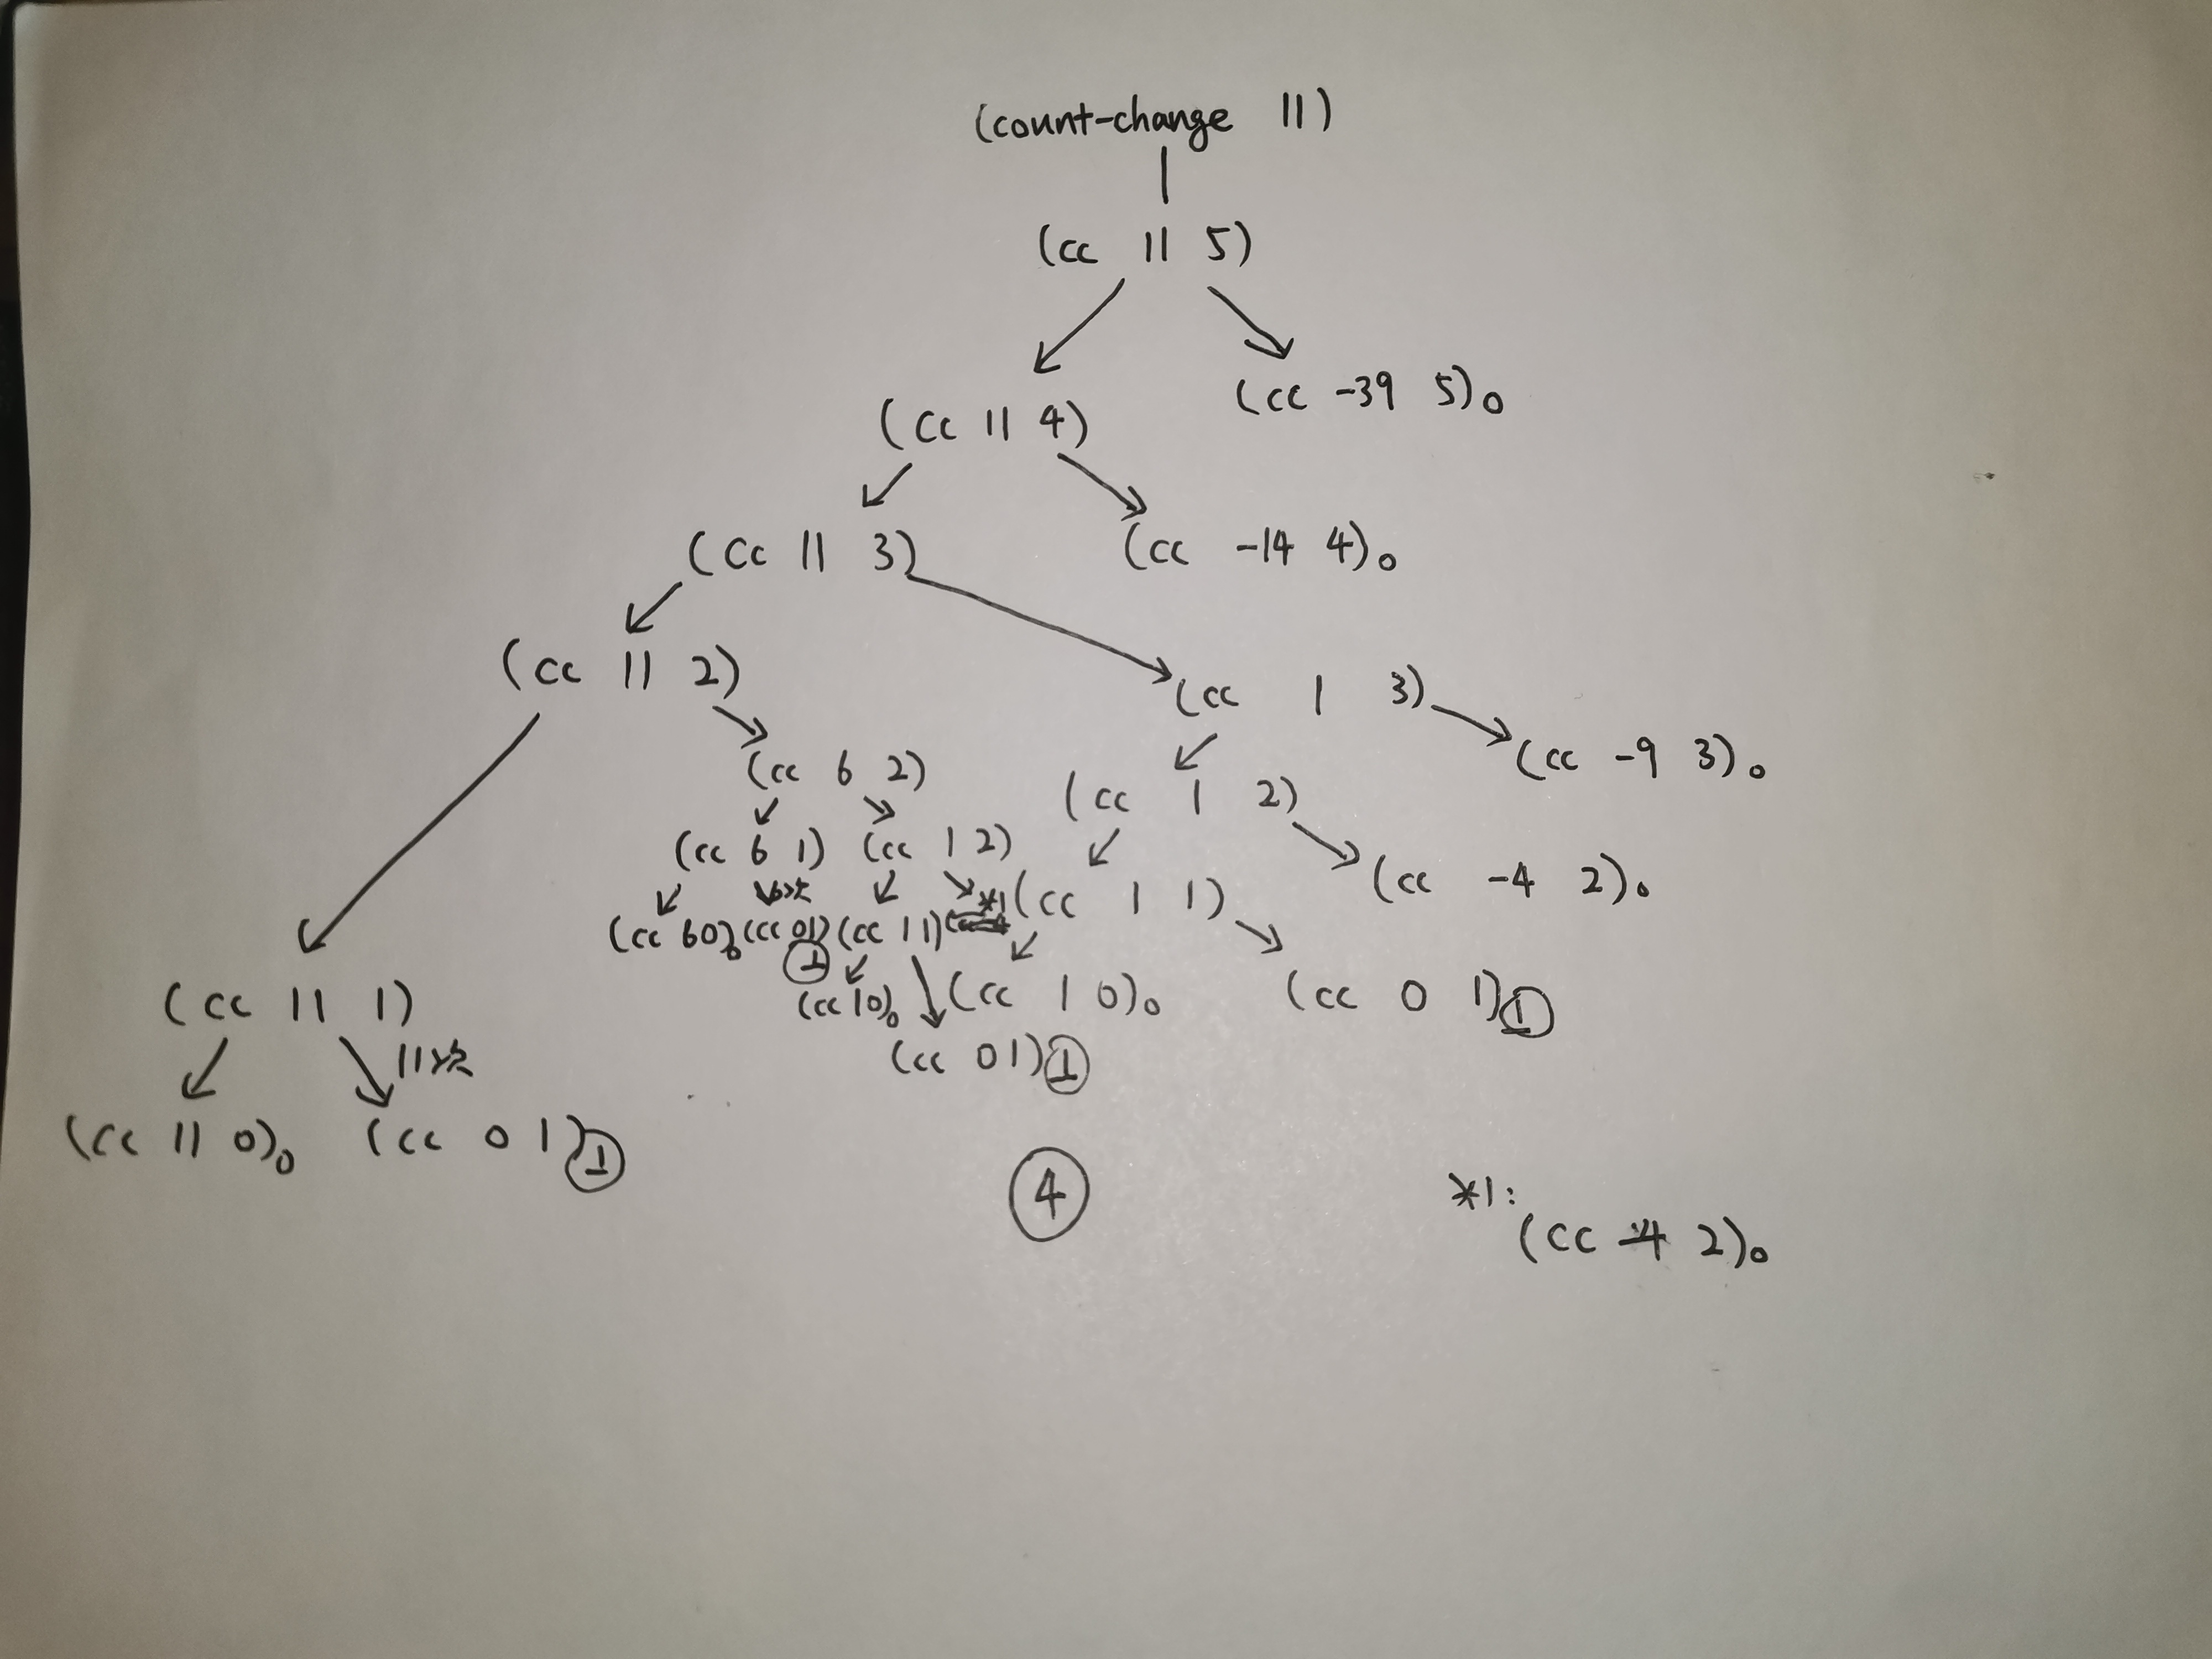 (count-change 11)
(cc 11 5)
(cc 11 4) (cc -39 5)0
(cc 11 3) (cc -14 4)0
(cc 11 2) (cc 1 3) (cc -9 3)0
(cc 6 2) (cc 1 2)
(cc 6 1) (cc 1 2) (cc -4 2)0
6次 *1 (cc 1 1)
(cc 6 0)0 (cc 0 1) ① (cc 1 1)
(cc 11 1) (cc 1 0)0 (cc 1 0)0 (cc 0 1) ①
11次 (cc 0 1) ①
(cc 11 0)0 (cc 0 1) ①
④
*1:
(cc -4 2)0